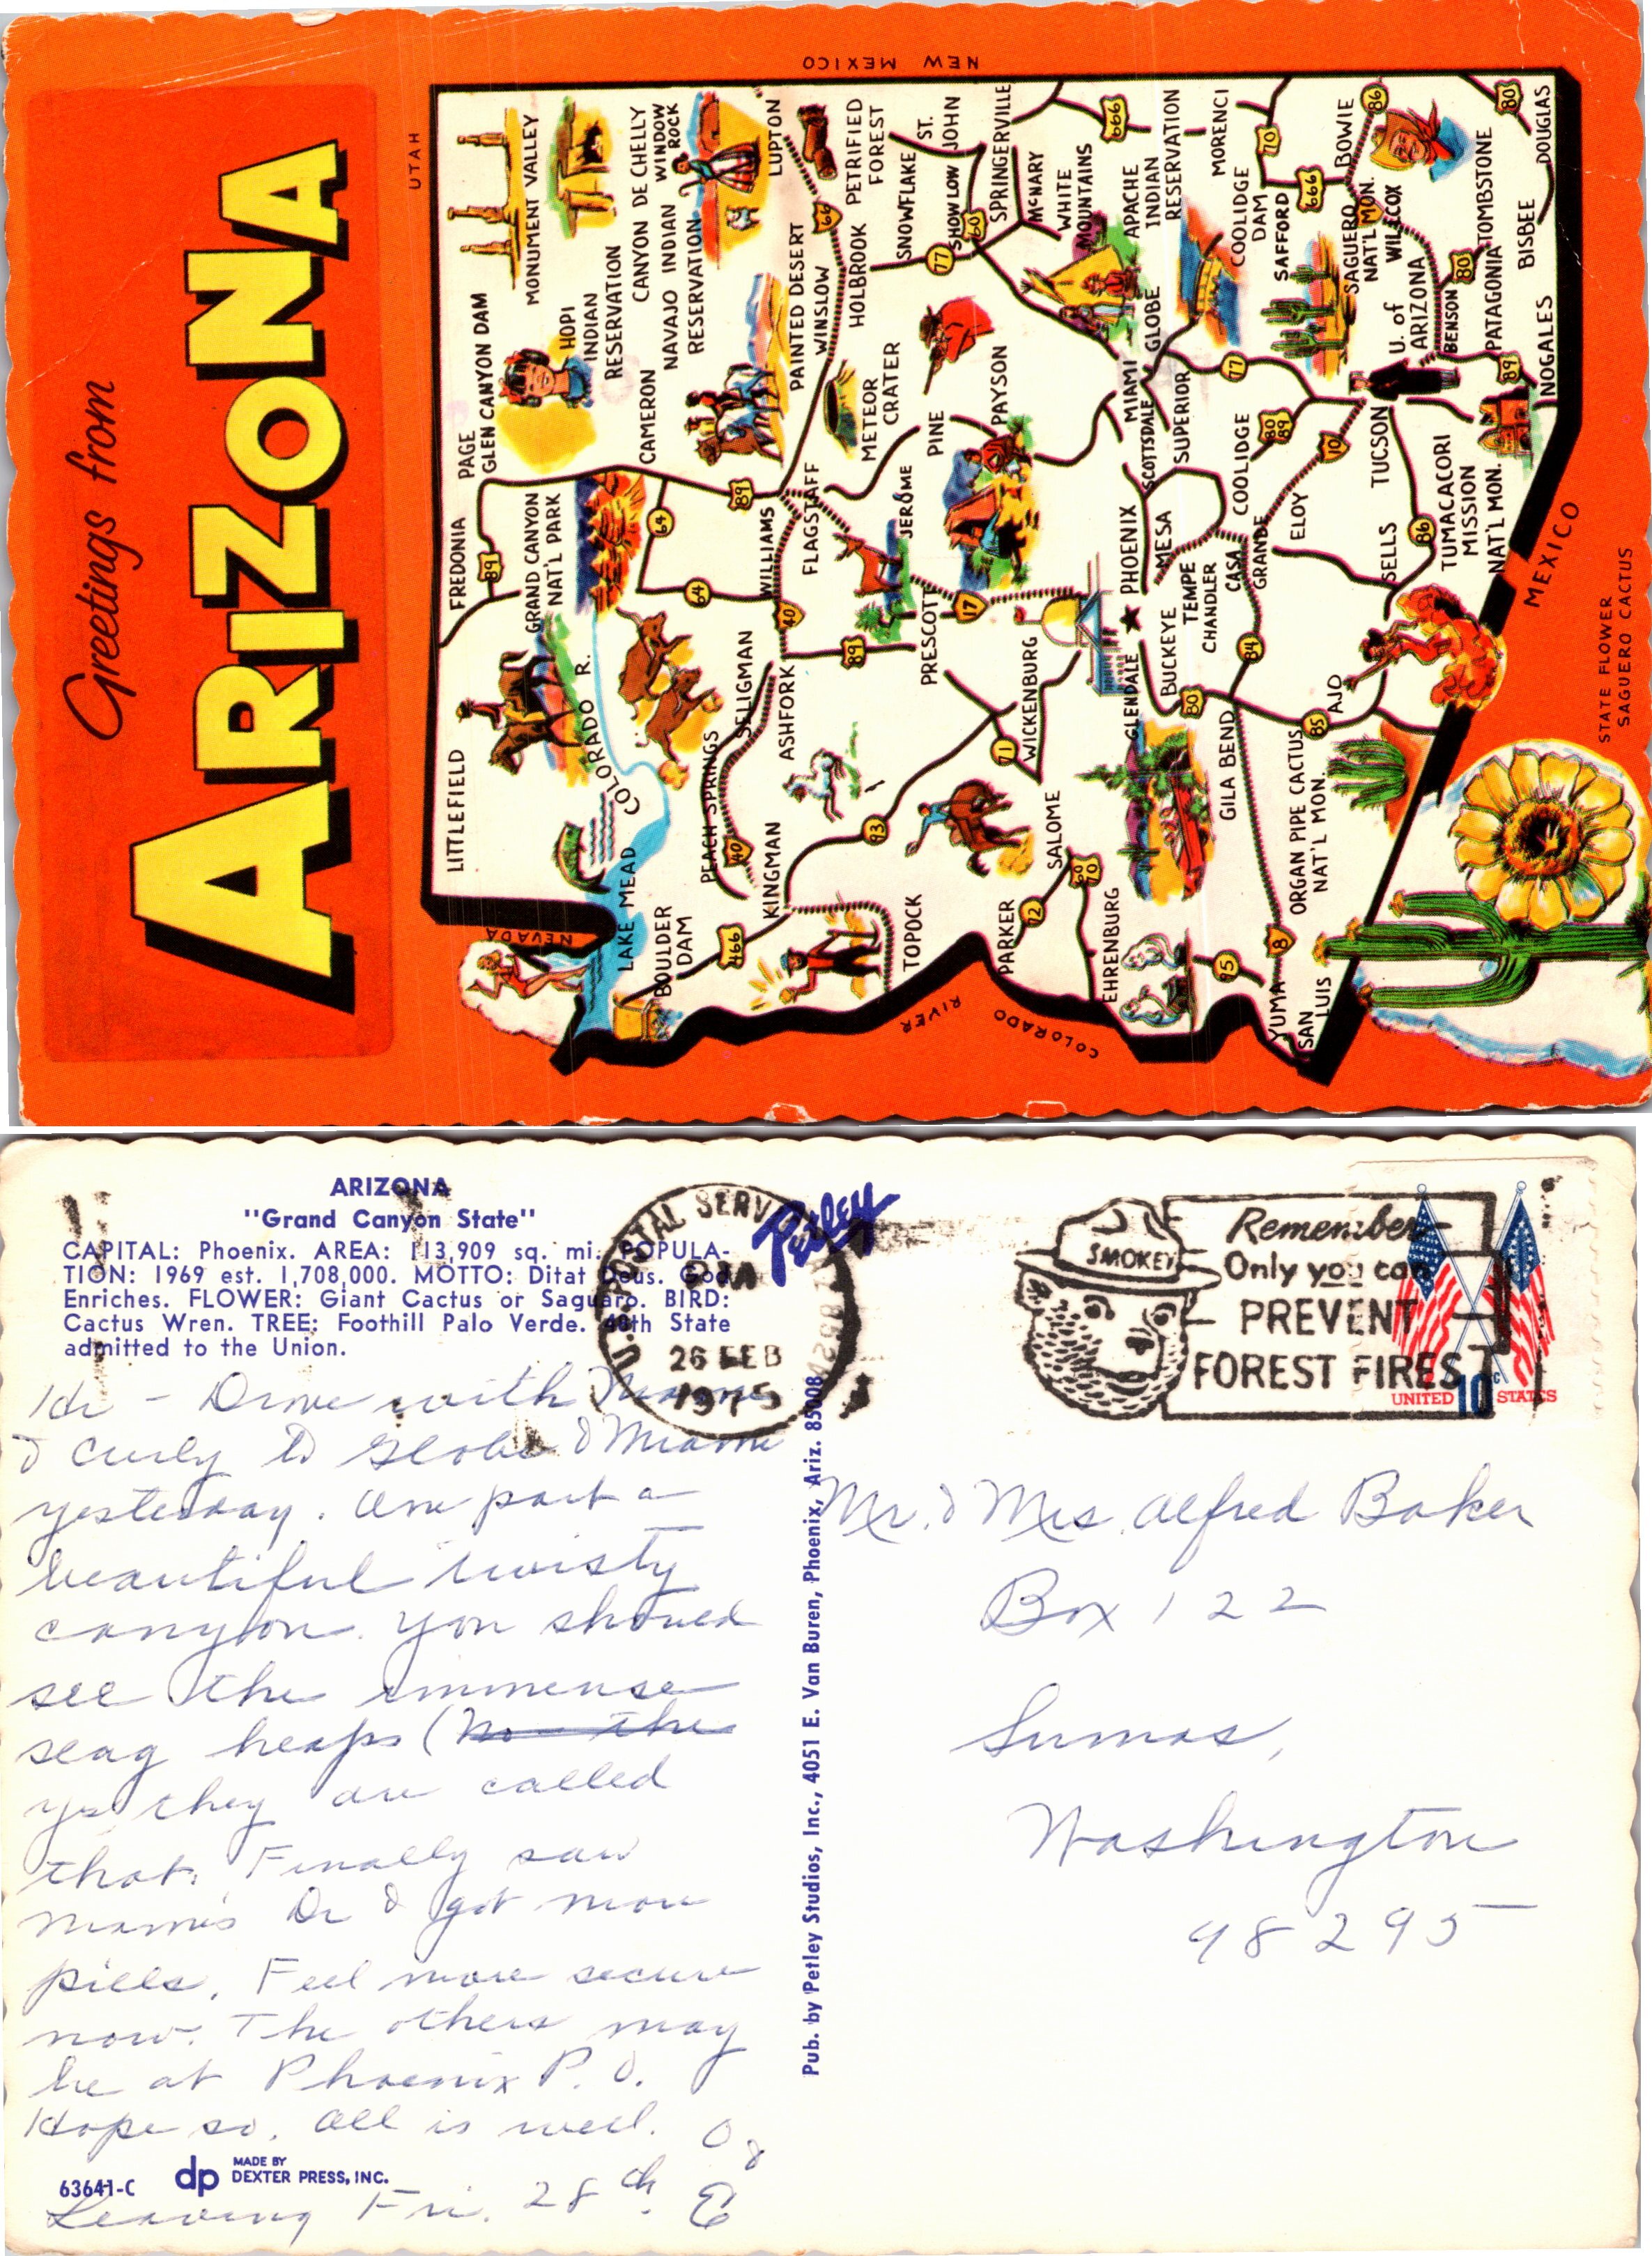 Greetings from
ARIZONA
UTAH
NEW MEXICO
NEVADA
COLORADO RIVER
MEXICO
STATE FLOWER
SAGUERO CACTUS
LITTLEFIELD
FREDONIA
89
PAGE
GLEN CANYON DAM
MONUMENT VALLEY
GRAND CANYON
NAT'L PARK
HOPI
INDIAN
RESERVATION
CANYON DE CHELLY
WINDOW
ROCK
NAVAJO INDIAN
RESERVATION
COLORADO R.
LAKE MEAD
BOULDER
DAM
CAMERON
64
64
89
466
PEACH SPRINGS
SELIGMAN
40
KINGMAN
ASHFORK
WILLIAMS
40
FLAGSTAFF
PAINTED DESERT
WINSLOW
LUPTON
66
HOLBROOK
PETRIFIED
FOREST
METEOR
CRATER
89
93
TOPOCK
JEROME
PRESCOTT
17
PINE
PAYSON
SNOWFLAKE
77
SHOW LOW
60
ST.
JOHN
SPRINGERVILLE
McNARY
WHITE
MOUNTAINS
666
APACHE
INDIAN
RESERVATION
MORENCI
71
WICKENBURG
PARKER
72
SALOME
60
70
EHRENBURG
GLENDALE
PHOENIX
SCOTTSDALE
MESA
TEMPE
CHANDLER
BUCKEYE
80
MIAMI
GLOBE
SUPERIOR
COOLIDGE
DAM
SAFFORD
70
666
77
COOLIDGE
80
89
CASA
GRANDE
ELOY
10
84
GILA BEND
95
8
YUMA
SAN
LUIS
ORGAN PIPE CACTUS
NAT'L MON.
85
AJO
SELLS
86
TUCSON
U. of
ARIZONA
SAGUERO
NAT'L MON.
WILLCOX
BOWIE
86
BENSON
80
TOMBSTONE
PATAGONIA
BISBEE
DOUGLAS
80
TUMACACORI
MISSION
NAT'L MON.
89
NOGALES
ARIZONA
"Grand Canyon State"
CAPITAL: Phoenix. AREA: 113,909 sq. mi. POPULA-
TION: 1969 est. 1,708,000. MOTTO: Ditat Deus. God
Enriches. FLOWER: Giant Cactus or Saguaro. BIRD:
Cactus Wren. TREE: Foothill Palo Verde. 48th State
admitted to the Union.
Petley
U.S. POSTAL SERV
PM
26 FEB
1975
SMOKEY
Remember
Only you can
PREVENT
FOREST FIRES
UNITED 10c STATES
Hi - Drove with Mame
& Curly to Globe & Miami
yesterday. One part a
beautiful twisty
canyon. You should
see the immense
slag heaps ( the
yes they are called
that. Finally saw
Mame's Dr & got more
pills. Feel more secure
now. The others may
be at Phoenix P.O.
Hope so. All is well.
Leaving Fri. 28th. E
Mr. & Mrs. Alfred Baker
Box 122
Sumas,
Washington
98295
Pub. by Petley Studios, Inc., 4051 E. Van Buren, Phoenix, Ariz. 85008
63641-C
dp
MADE BY
DEXTER PRESS, INC.